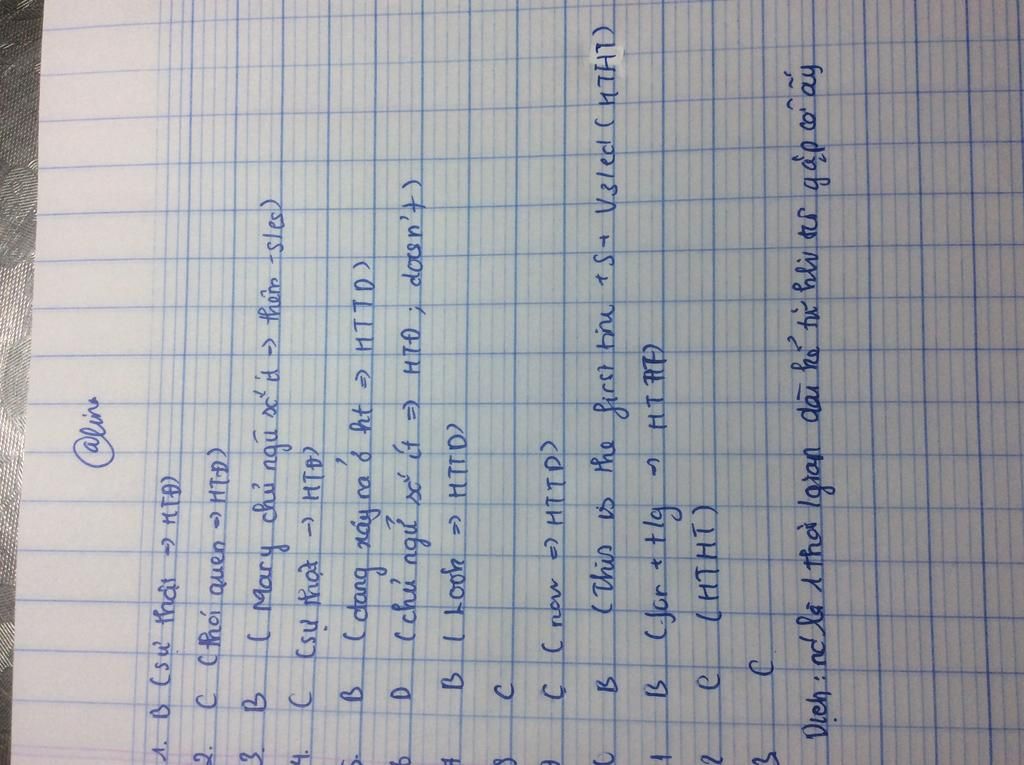 @line
1. B (sự thật => HTĐ)
2. C (thói quen => HTĐ)
3. B ( Mary chủ ngữ số ít => thêm -s/es)
4. C (sự thật -> HTĐ)
5. B (đang xảy ra ở ht => HTTD)
6 D (chủ ngữ số ít => HTĐ ; doesn't)
7 B ( Look => HTTD)
8 C
9 C (now => HTTD)
0 B (This is the first time + S + V3/ed (HTHT)
1 B (for + tg -> HTHT)
2 C (HTHT)
3 C
Dịch: nó là 1 thời gian dài kể từ khi tôi gặp cô ấy